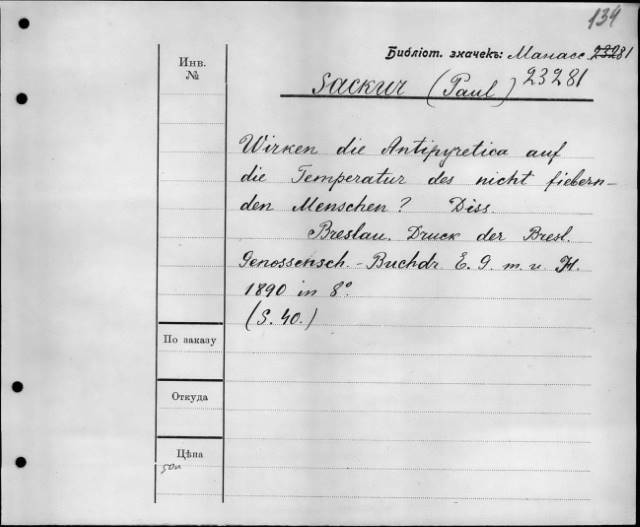 134
Библіот. значекъ: Манасс 23281
Инв.
№
Sackur (Paul) 23281
Wirken die Antipyretica auf
die Temperatur des nicht fiebern-
den Menschen? Diss.
Breslau. Druck der Bresl.
Genossensch.-Buchdr. E. G. m. u H.
1890 in 8°.
(S. 40.)
По заказу
Откуда
Цѣна
50п